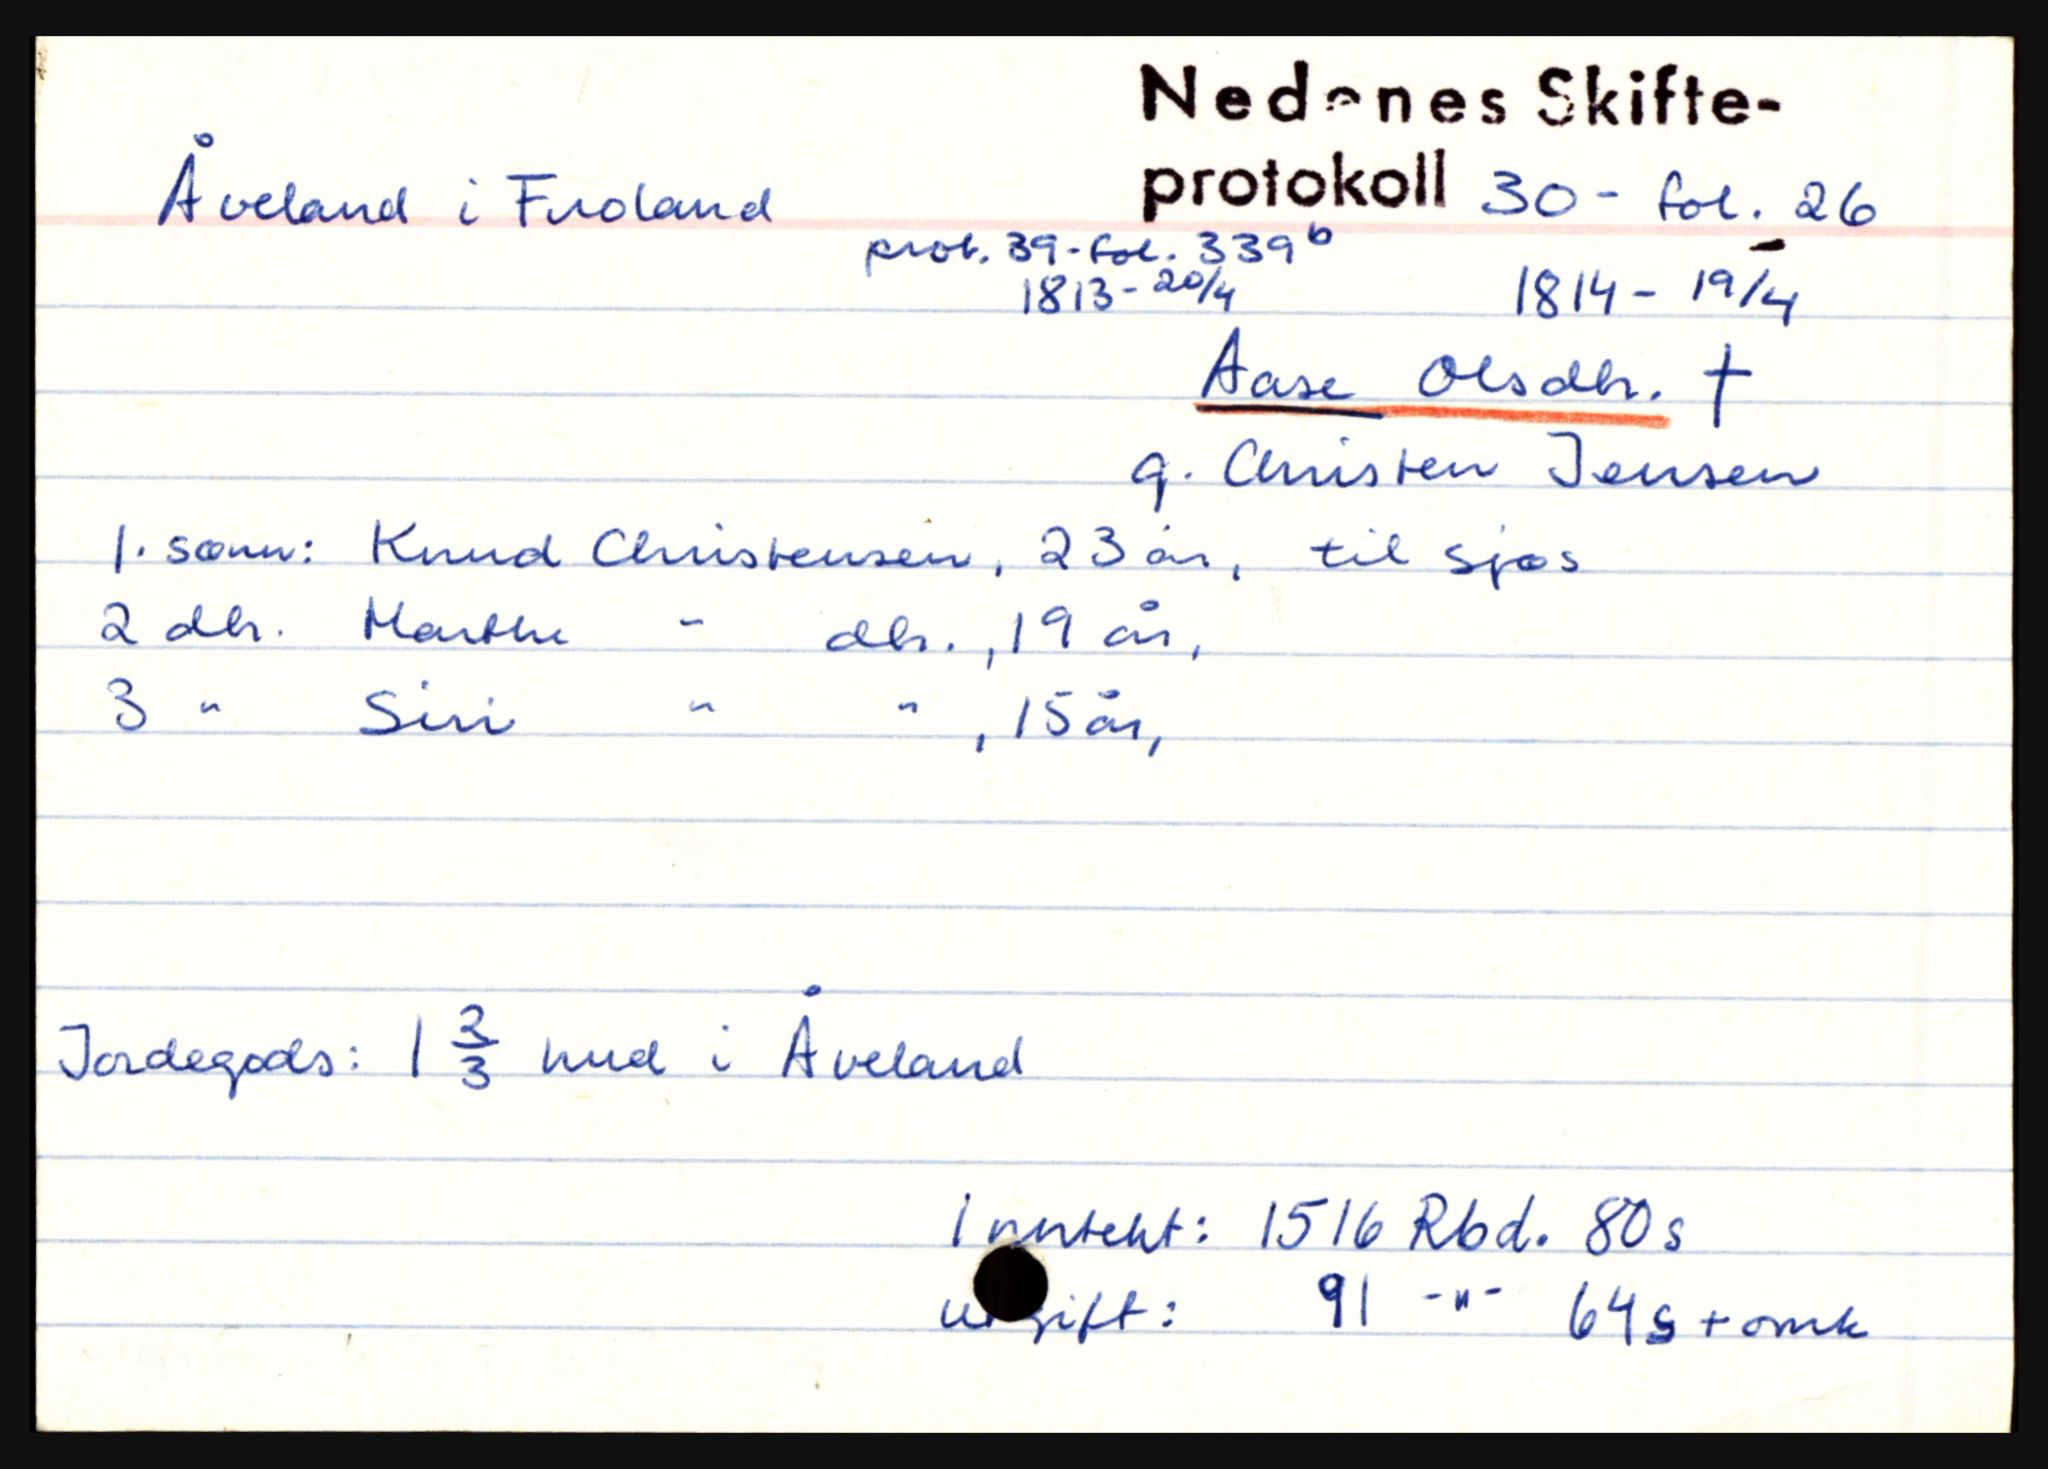 Nedenes Skifte-
Åveland i Froland protokoll 30 - fol. 26
prot. 39 - fol. 339b
1813 - 20/4 1814 - 19/4
Aase Olsdtr. †
g. Christen Jensen
1. sønn: Knud Christensen, 23 år, til sjøs
2 dtr. Marthe " dtr., 19 år,
3 " Siri " " , 15 år,
Jordegods: 1 2/3 hud i Åveland
Inntekt: 1516 Rbd. 80 s
utgift: 91 -"- 64 s + omk